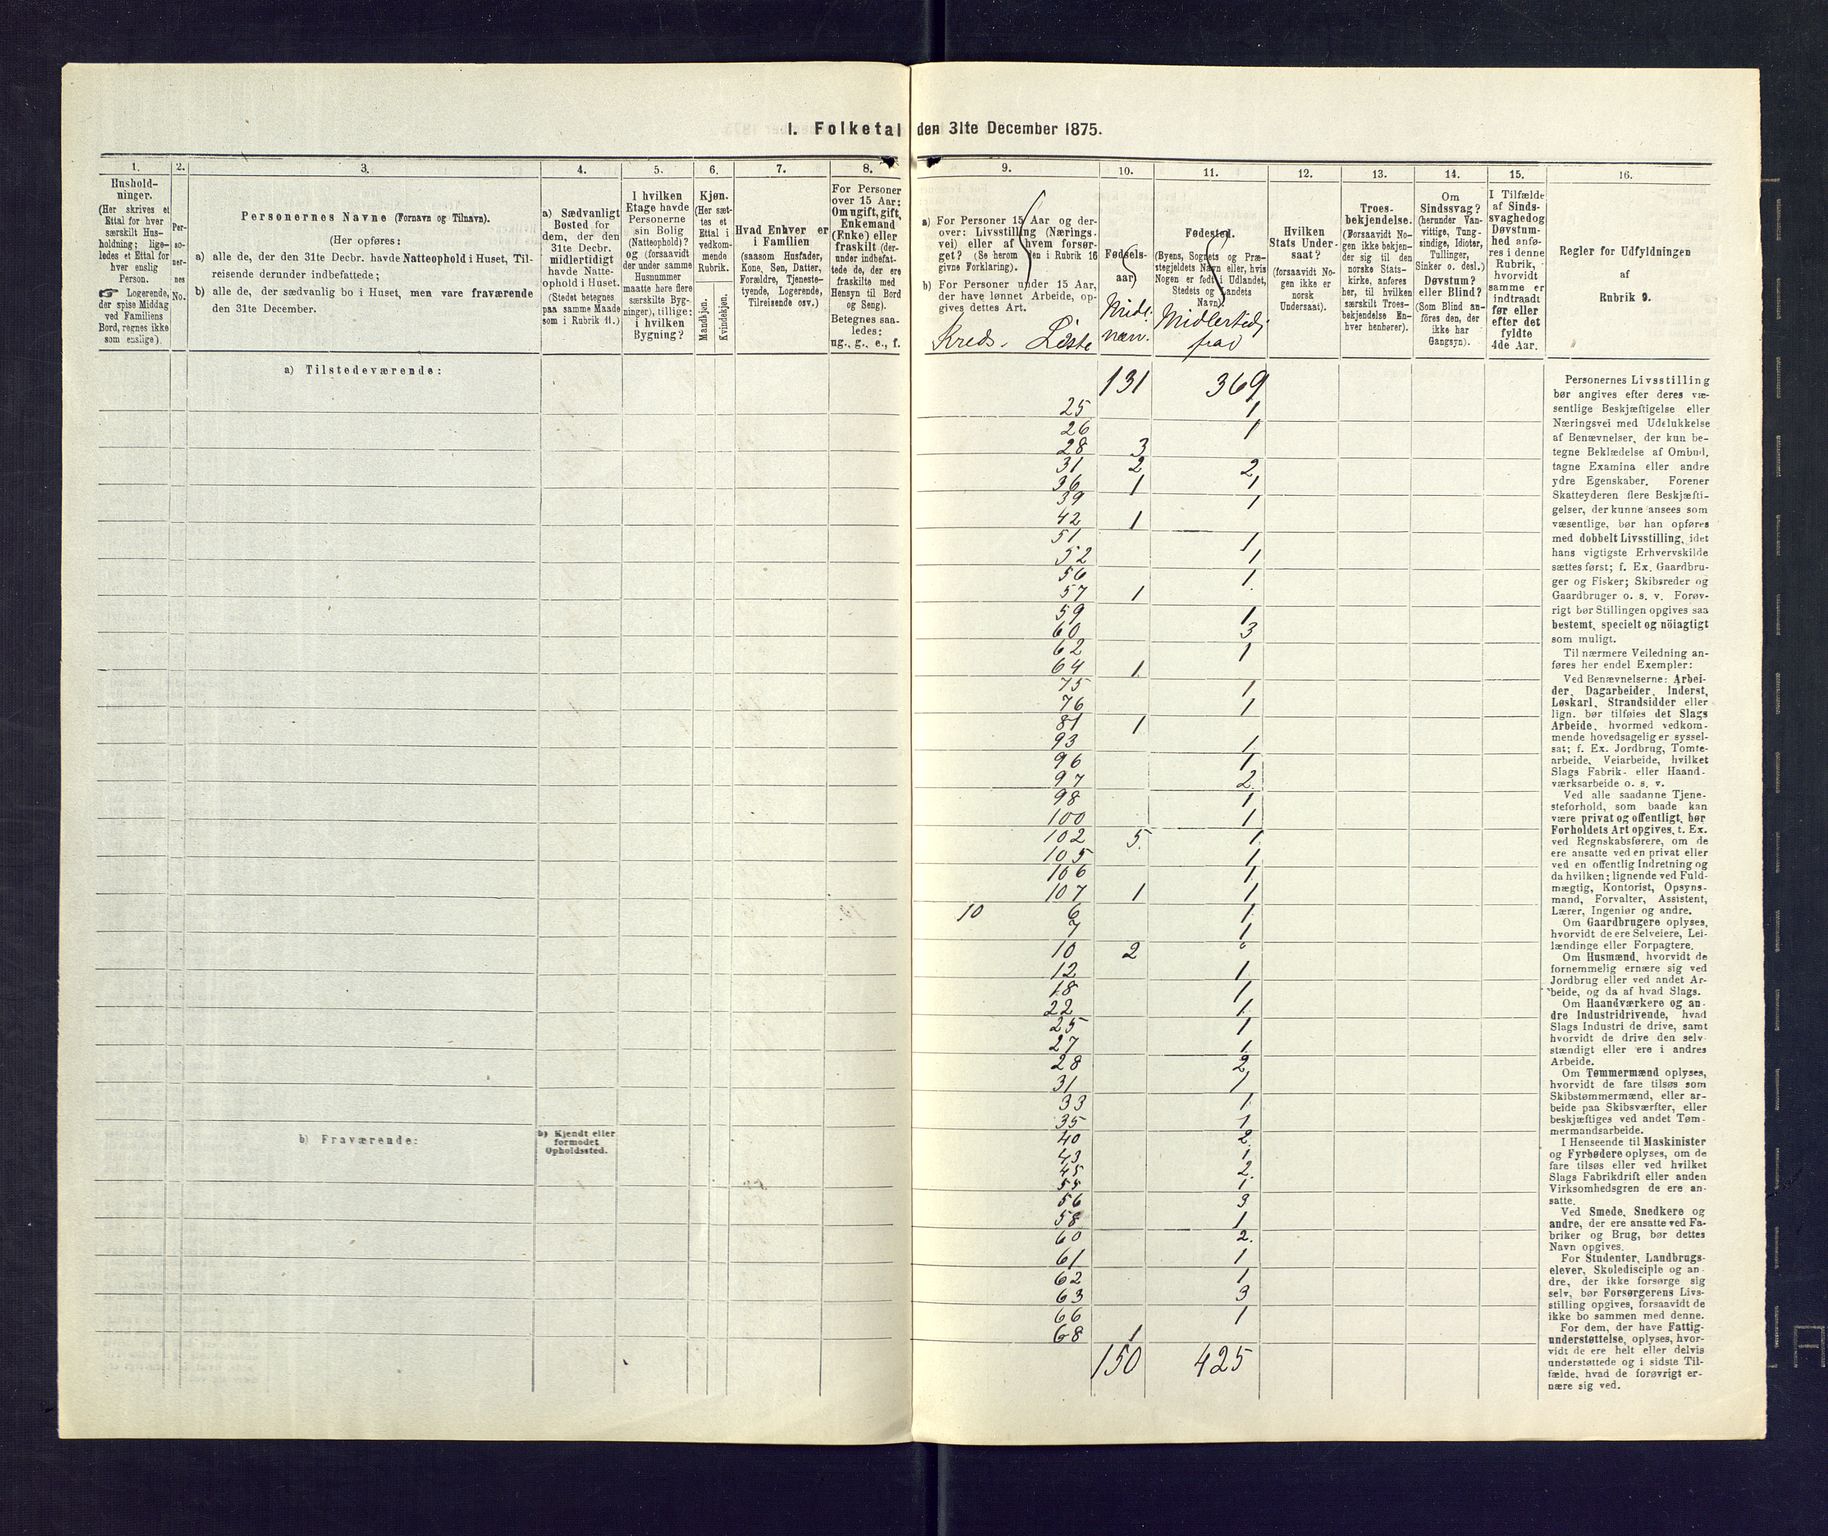 1. Folketal den 31te December 1875.
1.
Hushold-
ninger.
(Her skrives et
Ettal for hver
særskilt Hus-
holdning; lige-
ledes et Ettal for
hver enslig
Person.
☞ Logerende,
der spise Middag
ved Familiens
Bord, regnes ikke
som enslige).
2.
Per-
so-
ner-
nes
No.
3.
Personernes Navne (Fornavn og Tilnavn).
(Her opføres:
a) alle de, der den 31te Decbr. havde Natteophold i Huset, Til-
reisende derunder indbefattede;
b) alle de, der sædvanlig bo i Huset, men vare fraværende
den 31te December.
4.
a) Sædvanligt
Bosted for
dem, der den
31te Decbr.
midlertidigt
havde Natte-
ophold i Huset.
(Stedet betegnes
paa samme Maade
som i Rubrik 11.)
5.
I hvilken
Etage havde
Personerne
sin Bolig
(Natteophold)?
og (forsaavidt
der under samme
Husnummer
maatte høre flere
særskilte Byg-
ninger), tillige:
i hvilken
Bygning?
6.
Kjøn.
(Her sæt-
tes et
Ettal i
vedkom-
mende
Rubrik.
Mandkjøn.
Kvindekjøn.
7.
Hvad Enhver er
i Familien
(saasom Husfader,
Kone, Søn, Datter,
Forældre, Tjeneste-
tyende, Logerende,
Tilreisende osv.)
8.
For Personer
over 15 Aar:
Om ugift, gift,
Enkemand
(Enke) eller
fraskilt (der-
under indbefat-
tede de, der ere
fraskilte med
Hensyn til Bord
og Seng).
Betegnes saa-
ledes:
ug., g., e., f.
9.
a) For Personer 15 Aar og der-
over: Livsstilling (Nærings-
vei) eller af hvem forsør-
get? (Se herom den i Rubrik 16
givne Forklaring).
b) For Personer under 15 Aar,
der have lønnet Arbeide, op-
gives dettes Art.
Kreds. Liste
10.
Fødsels-
aar)
11.
Fødested.
(Byens, Sognets og Præ-
stegjeldets Navn eller, hvis
Nogen er født i Udlandet,
Stedets og Landets
Navn).
Midlertidig
frav
12.
Hvilken
Stats Under-
saat?
(forsaavidt No-
gen ikke er
norsk
Undersaat).
13.
Troes-
bekjendelse.
(Forsaavidt No-
gen ikke bekjen-
der sig til den
norske Stats-
kirke, anføres
her, til hvilken
særskilt Troes-
bekjendelse En-
hver henhører).
14.
Om
Sindssvag?
(herunder Van-
vittige, Tung-
sindige, Idioter,
Tullinger,
Sinker o. desl.)
Døvstum?
eller Blind?
(Som Blind an-
føres den, der
ikke har
Gangsyn).
15.
I Tilfælde
af Sinds-
svaghed og
Døvstum-
hed anfø-
res i denne
Rubrik,
hvorvidt
samme er
indtraadt
før eller
efter det
fyldte
4de Aar.
16.
Regler for Udfyldningen
af
Rubrik 9.
a) Tilstedeværende:
131 369
25 1
26 1
28 3
31 2 2
36 1 1
39 1
42 1
51 1
52 1
56 1
57 1
59 1
60 3
62 1
64 1
75 1
76 1
81 1
93 1
96 1
97 2
98 1
100 1
102 5. 1
105 1
106 1
107 1 1
10 6 1
7 1
10 2
12 1
18 1
22 1
25 1
27 1
28 2
31 1
33 1
35 1
40 2
43 1
45 2
55 1
56 3
58 1
60 2
61 1
62 1
63 3
66 1
68 1
150 425
b) Fraværende:
b) Kjendt eller
formodet
Opholdssted.
Personernes Livsstilling
bør angives efter deres væ-
sentlige Beskjæftigelse eller
Næringsvei med Udelukkelse
af Benævnelser, der kun be-
tegne Beklædelse af Ombud,
tagne Examina eller andre
ydre Egenskaber. Forener
Skatteyderen flere Beskjæfti-
gelser, der kunne ansees som
væsentlige, bør han opføres
med dobbelt Livsstilling, idet
hans vigtigste Erhvervskilde
sættes først; f. Ex. Gaardbru-
ger og Fisker; Skibsreder og
Gaardbruger o. s. v. Forøv-
rigt bør Stillingen opgives saa
bestemt, specielt og nöiagtigt
som muligt.
Til nærmere Veiledning an-
føres her endel Exempler:
Ved Benævnelserne: Arbei-
der, Dagarbeider, Inderst,
Løskarl, Strandsidder eller
lign. bør tilføies det Slags
Arbeide, hvormed vedkom-
mende hovedsagelig er syssel-
sat; f. Ex. Jordbrug, Tomte-
arbeide, Veiarbeide, hvilket
Slags Fabrik- eller Haand-
værksarbeide o. s. v.
Ved alle saadanne Tjene-
steforhold, som baade kan
være privat og offentligt, bør
Forholdets Art opgives, t. Ex.
ved Regnskabsførere, om de
ere ansatte ved en privat eller
ved en offentlig Indretning og
da hvilken; lignende ved Fuld-
mægtig, Kontorist, Opsyns-
mand, Forvalter, Assistent,
Lærer, Ingeniør og andre.
Om Gaardbrugere oplyses,
hvorvidt de ere Selveiere, Lei-
lændinge eller Forpagtere.
Om Husmænd, hvorvidt de
fornemmelig ernære sig ved
Jordbrug eller ved andet Ar-
beide, og da af hvad Slags.
Om Haandværkere og an-
dre Industridrivende, hvad
Slags Industri de drive, samt
hvorvidt de drive den selv-
stændigt eller ere i andres
Arbeide.
Om Tømmermænd oplyses,
hvorvidt de fare tilsøs som
Skibstømmermænd, eller ar-
beide paa Skibsværfter, eller
beskjæftiges ved andet Tøm-
mermandsarbeide.
I Henseende til Maskinister
og Fyrbødere oplyses, om de
fare tilsøs eller ved hvilket
Slags Fabrikdrift eller anden
Virksomhedsgren de ere an-
satte.
Ved Smede, Snedkere og
andre, der ere ansatte ved Fa-
briker og Brug, bør dettes
Navn opgives.
For Studenter, Landbrugs-
elever, Skoledisciple og an-
dre, der ikke forsørge sig
selv, bør Forsørgerens Livs-
stilling opgives, forsaavidt de
ikke bo sammen med denne.
For dem, der have Fattig-
understøttelse, oplyses, hvor-
vidt de ere helt eller delvis
understøttede og i sidste Til-
fælde, hvad de forøvrigt er-
nære sig ved.